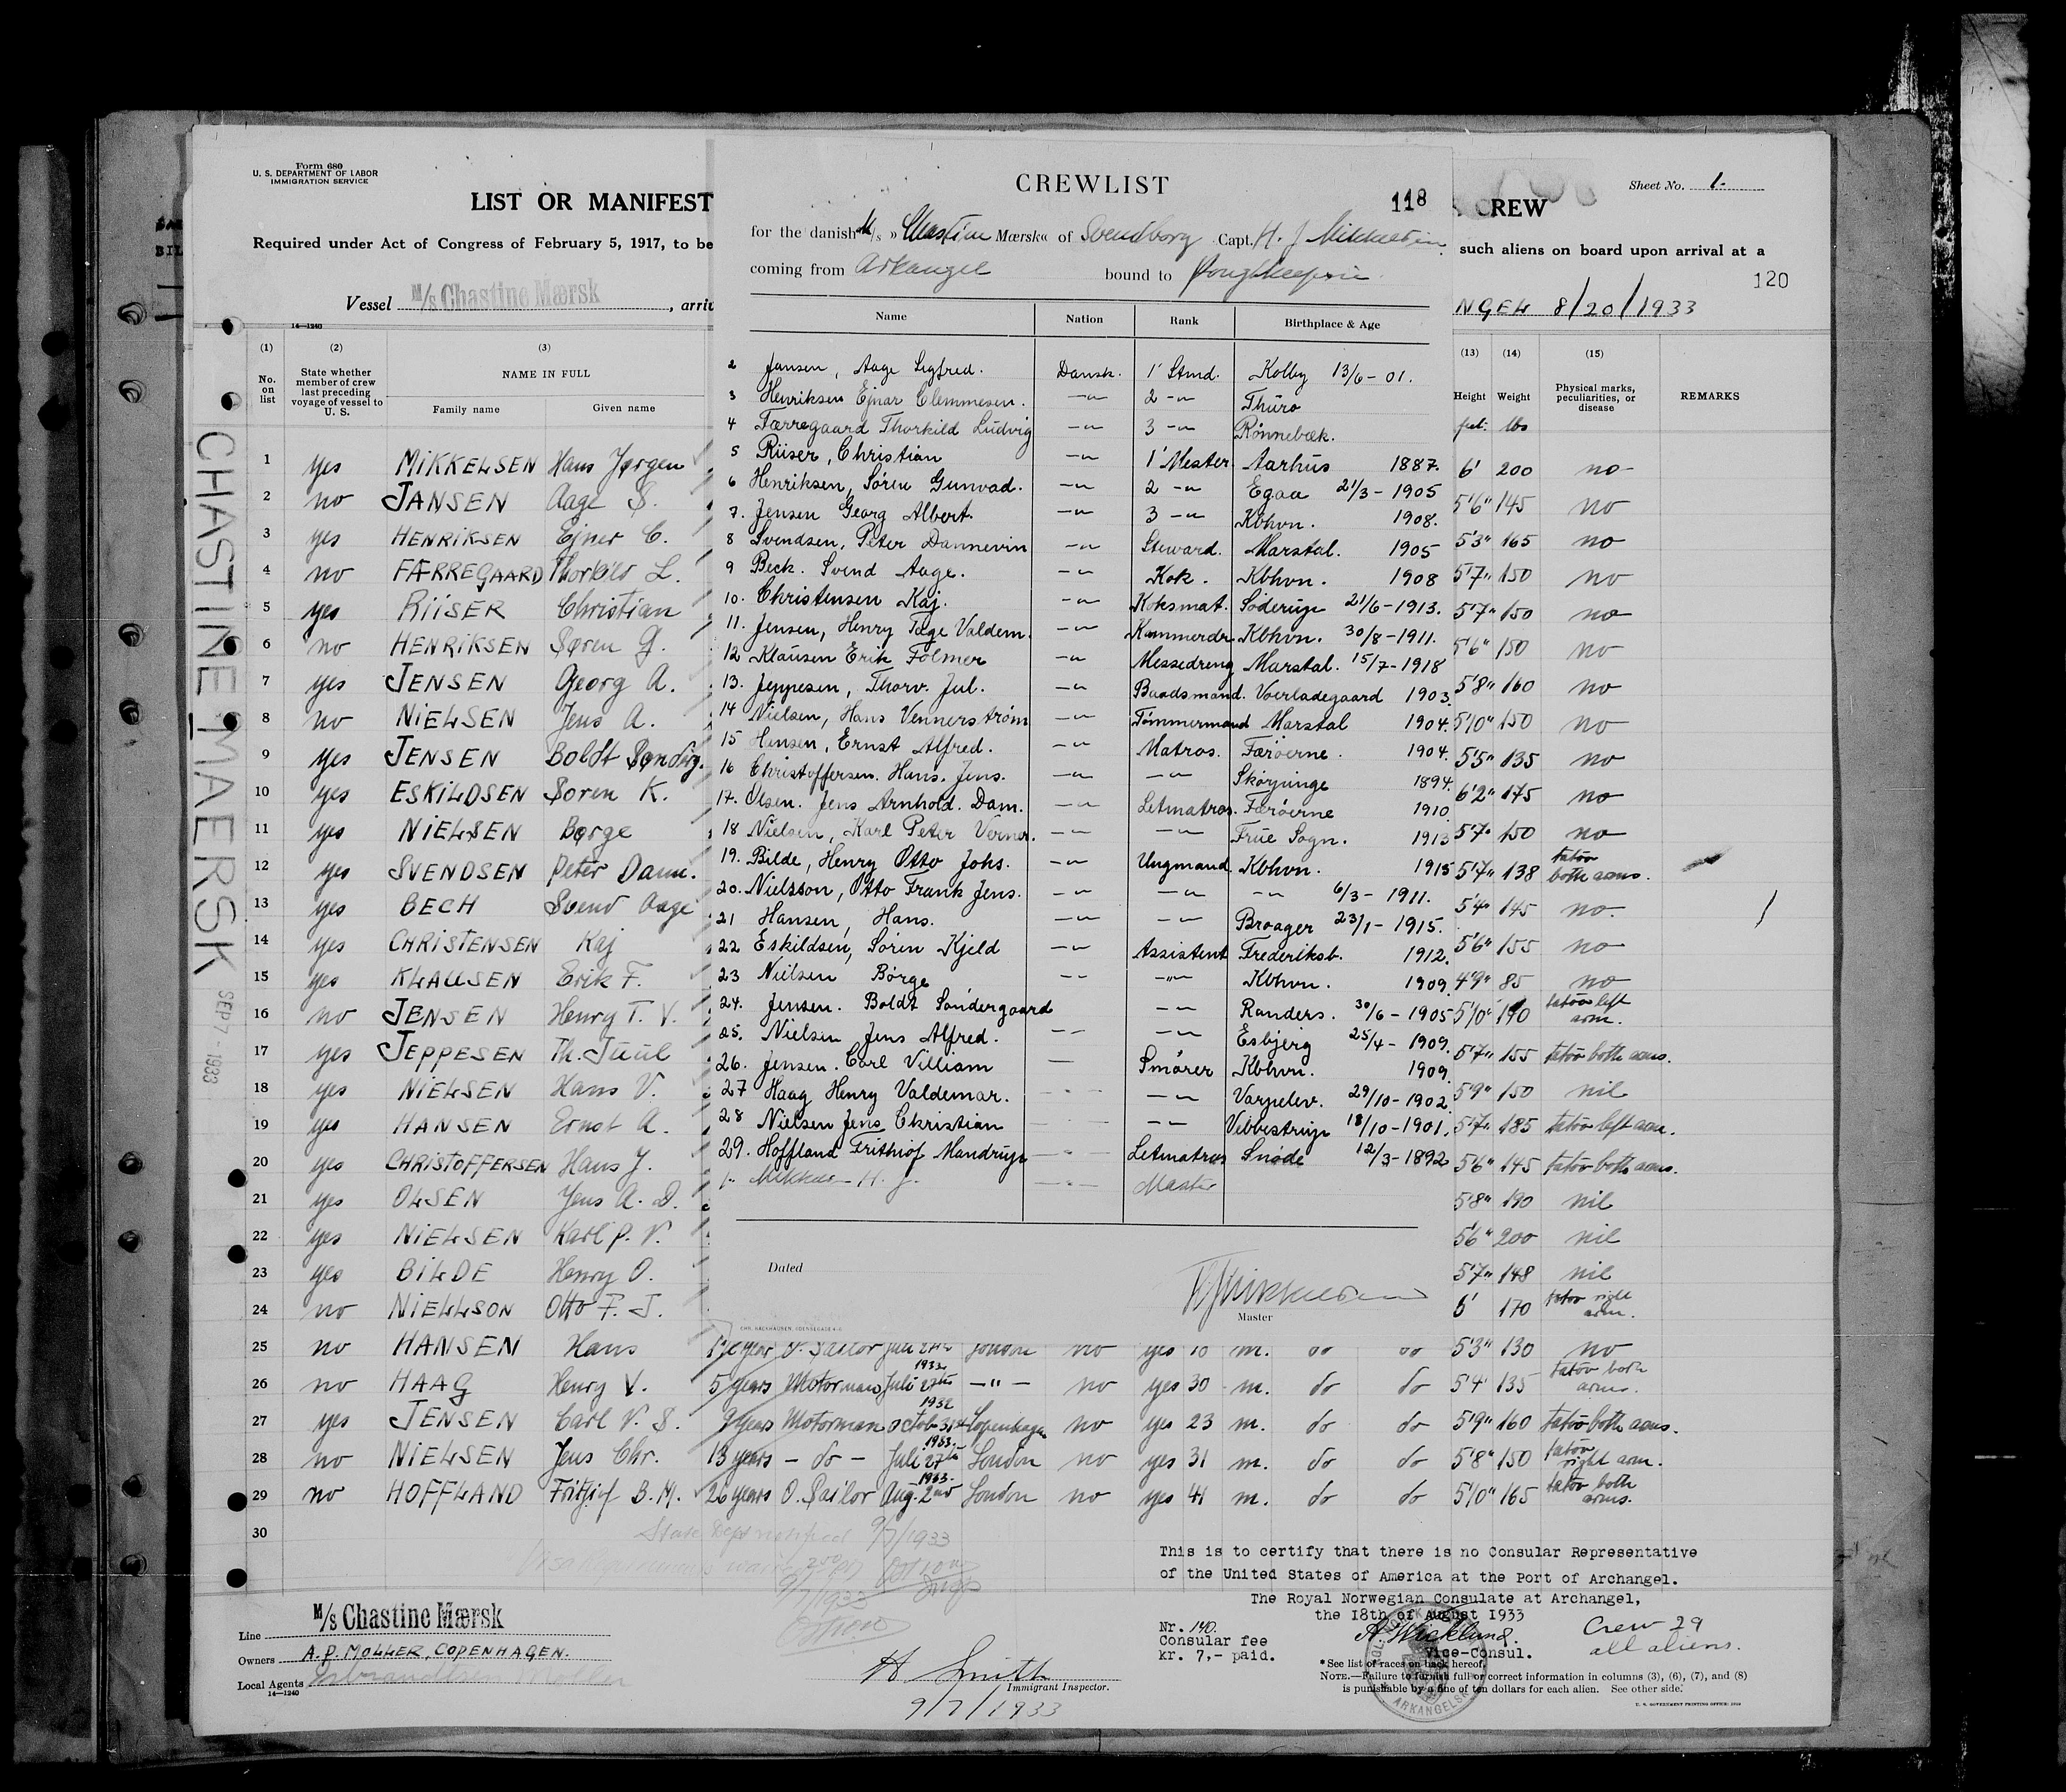 Form 680
U. S. DEPARTMENT OF LABOR
IMMIGRATION SERVICE
LIST OR MANIFEST
Required under Act of Congress of February 5, 1917, to be
Vessel M/s Chastine Mærsk, arriv
14—1240
(1) (2) (3)
No. on list
State whether member of crew last preceding voyage of vessel to U. S.
NAME IN FULL
Family name Given name
1 yes MIKKELSEN Hans Jørgen
2 no JANSEN Aage S.
3 yes HENRIKSEN Ejner C.
4 no FÆRREGAARD Thorkild L.
5 yes RIISER Christian
6 no HENRIKSEN Søren G.
7 yes JENSEN Georg A.
8 no NIELSEN Jens A.
9 yes JENSEN Boldt Søndrg.
10 yes ESKILDSEN Søren K.
11 yes NIELSEN Børge
12 yes SVENDSEN Peter Dann.
13 yes BECH Svend Aage
14 yes CHRISTENSEN Kaj
15 yes KLAUSEN Erik F.
16 no JENSEN Henry T. V.
17 yes JEPPESEN Th. Juul
18 yes NIELSEN Hans V.
19 yes HANSEN Ernst A.
20 yes CHRISTOFFERSEN Hans J.
21 yes OLSEN Jens A. D.
22 yes NIELSEN Karl P. V.
23 yes BILDE Henry O.
24 no NIELLSON Otto F. J.
25 no HANSEN Hans
26 no HAAG Henry V.
27 yes JENSEN Carl V. S.
28 no NIELSEN Jens Chr.
29 no HOFFLAND Fritjof B. M.
30
CHASTINE MAERSK SEP 7 - 1933
CREWLIST
118
for the danish M/s »Chastine Mærsk« of Svendborg Capt. H. J. Mikkelsen
coming from Arkangel bound to Poughkeepsie
Name Nation Rank Birthplace & Age
2 Jansen, Aage Sigfred. Dansk. 1' Stmd. Kolby 13/6 - 01.
3 Henriksen Ejnar Clemmesen. —〃— 2 —〃— Thurø
4 Færregaard Thorkild Ludvig —〃— 3 —〃— Rønnebæk.
5 Riiser, Christian —〃— 1' Mester Aarhus 1887.
6 Henriksen, Søren Gunvad. —〃— 2 —〃— Egaa 21/3 - 1905
7. Jensen Georg Albert. —〃— 3 —〃— Kbhvn. 1908.
8 Svendsen, Peter Dannevin —〃— Steward. Marstal. 1905
9 Beck. Svend Aage. —〃— Kok. Kbhvn. 1908
10. Christensen Kaj. —〃— Koksmat. Søderup 21/6 - 1913.
11. Jensen, Henry Tage Valdem. —〃— Kammerdr. Kbhvn. 30/8 - 1911.
12 Klausen Erik Folmer —〃— Messedreng Marstal. 15/7 - 1918
13. Jeppesen, Thorv. Jul. —〃— Baadsmand. Voerladegaard 1903.
14 Nielsen, Hans Vennerstrøm —〃— Tømmermand Marstal 1904.
15 Hansen, Ernst Alfred. —〃— Matros. Færøerne. 1904.
16 Christoffersen. Hans. Jens. —〃— —〃— Skørpinge 1894.
17. Olsen. Jens Arnhold. Dam. —〃— Letmatros. Færøerne 1910.
18 Nielsen, Karl Peter Verner. —〃— —〃— Frue Sogn. 1913
19. Bilde, Henry Otto Johs. —〃— Ungmand Kbhvn. 1915
20. Nielsson, Otto Frank Jens. —〃— —〃— —〃— 6/3 - 1911.
21 Hansen, Hans. —〃— —〃— Broager 23/1 - 1915.
22 Eskildsen, Søren Kjeld —〃— Assistent Frederiksb. 1912.
23 Nielsen Børge —〃— —〃— Kbhvn. 1909.
24. Jensen. Boldt Søndergaard —〃— Randers. 30/6 - 1905
25. Nielsen Jens Alfred. —〃— —〃— Esbjerg 25/4 - 1909.
26. Jensen. Carl Villiam — Smører Kbhvn. 1909.
27 Haag Henry Valdemar. —〃— —〃— Varpelev. 29/10 - 1902.
28 Nielsen Jens Christian —〃— —〃— Vebbestrup 18/10 - 1901.
29. Hoffland Frithiof Mandrup —〃— Letmatros Snøde 12/3 - 1892
1. H. J. —〃— Master
Dated
H J Mikkelsen
Master
CHR. BACKHAUSEN, ODENSEGADE 4-6
CREW
Sheet No. 1.
such aliens on board upon arrival at a
120
NGEL 8/20/1933
(13) (14) (15)
Height Weight Physical marks, peculiarities, or disease REMARKS
feet. lbs
6' 200 no
5'6" 145 no
5'3" 165 no
5'7" 150 no
5'7" 150 no
5'6" 150 no
5'8" 160 no
5'10" 150 no
5'5" 135 no
6'2" 175 no
5'7" 150 no
5'7" 138 tatov both arms.
5'4" 145 no.
5'6" 155 no
4'9" 85 no
5'10" 140 tatov left arm.
5'7" 155 tatov both arms.
5'9" 150 nil
5'7" 185 tatov left arm.
5'6" 145 tatov both arms.
5'8" 190 nil
5'6" 200 nil
5'7" 148 nil
6' 170 tatov right arm.
O. Sailor London no yes m. do do 5'3" 130 no
5 years Motorman Juli 27th 1933 —"— no yes 30 m. do do 5'4" 135 tatov both arms.
9 years Motorman Octob. 31st 1932 Copenhagen no yes 23 m. do do 5'9" 160 tatov both arms.
13 years — do — Juli 27th 1933. London no yes 31 m. do do 5'8" 150 tatov right arm.
26 years O. Sailor Aug. 2nd 1933. London no yes 41 m. do do 5'10" 165 tatov both arms.
State Dept notified 9/7/1933
9/7/1933
This is to certify that there is no Consular Representative
of the United States of America at the Port of Archangel.
The Royal Norwegian Consulate at Archangel,
the 18th of August 1933
A Wicklund.
Vice-Consul.
Nr. 140.
Consular fee
kr. 7,- paid.
Crew 29
all aliens.
ARKANGELSK
Line M/s Chastine Mærsk
Owners A. P. MOLLER, COPENHAGEN.
Local Agents Isbrandtsen Moller
14—1240
H. Smith
Immigrant Inspector.
9/7/1933
*See list of races on back hereof.
NOTE.—Failure to furnish full or correct information in columns (3), (6), (7), and (8)
is punishable by a fine of ten dollars for each alien. See other side.
U. S. GOVERNMENT PRINTING OFFICE: 1929